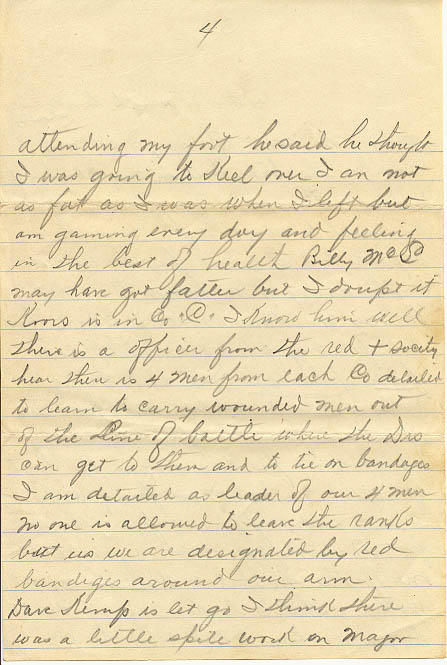 4
attending my foot he said he thought
I was going to Keel over I am not
as fat as I was when I left but
am gaining every day and feeling
in the best of health Billy McC
may have got fatter but I doupt it
Koors is in Co "C" I Know him well
there is a officer from the red + socity
hear ther is 4 men from each Co detailed
to learn to carry wounded men out
of the Line of battle where the Drs
can get to them and to tie on bandages
I am detailed as leader of our 4 men
no one is allowed to leave the ranks
but us we are designated by red
bandiges around our arm.
Dave Kemp is let go I think there
was a little spite work on Major